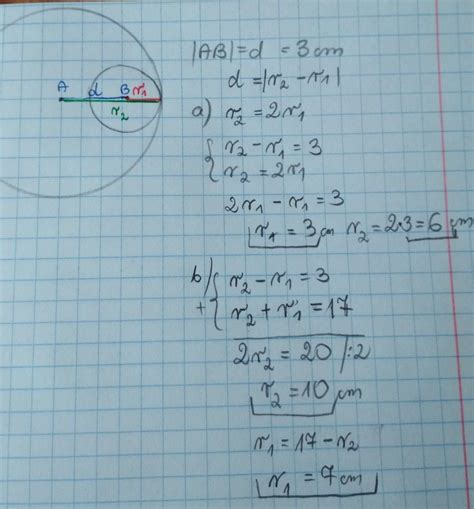 |AB| = d = 3 cm
d = |r₂ - r₁|
A d B r₁
r₂
a) r₂ = 2r₁
{ r₂ - r₁ = 3
r₂ = 2r₁
2r₁ - r₁ = 3
r₁ = 3 cm r₂ = 2·3 = 6 cm
b) { r₂ - r₁ = 3
+ r₂ + r₁ = 17
2r₂ = 20 /:2
r₂ = 10 cm
r₁ = 17 - r₂
r₁ = 7 cm